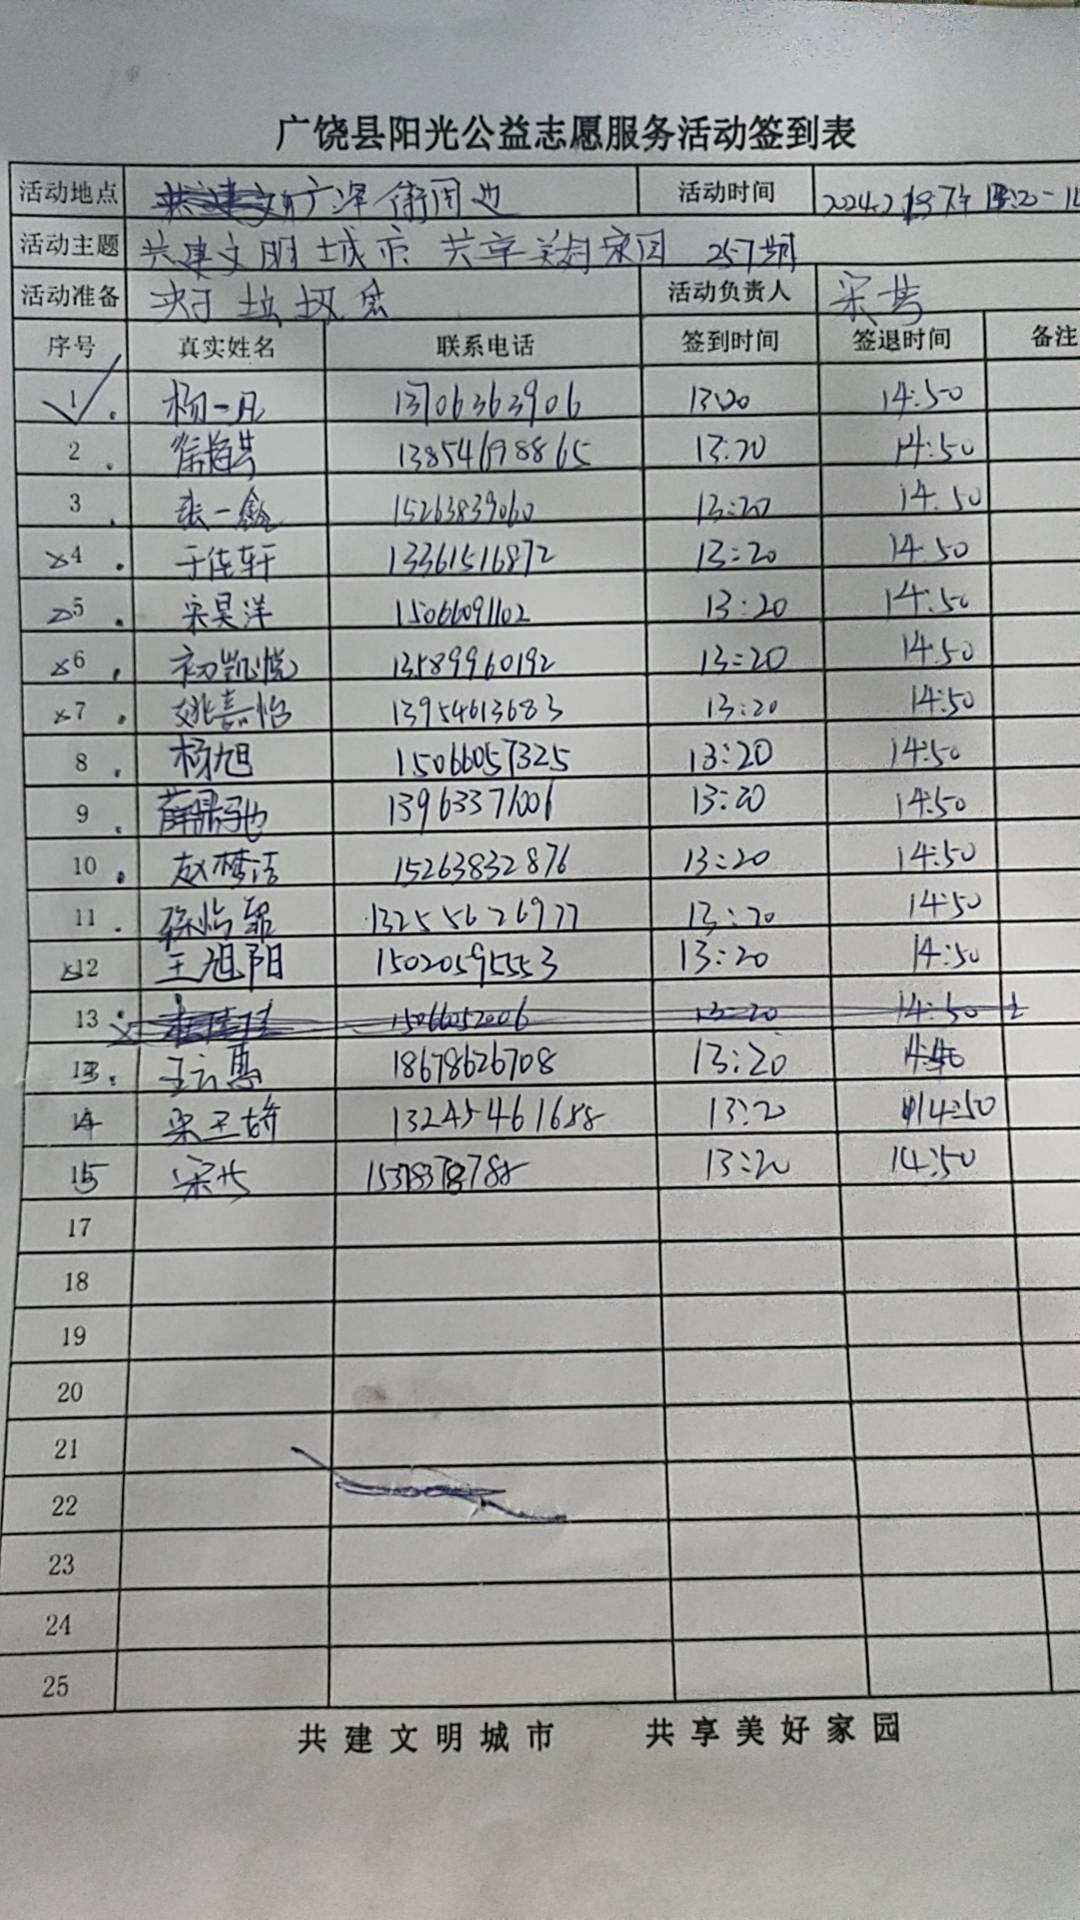 广饶县阳光公益志愿服务活动签到表
活动地点 广泽 街周边 活动时间
活动主题 共建文明城市 共享美好家园 257期
活动准备 夹子 垃圾袋 活动负责人 宋芸
序号 真实姓名 联系电话 签到时间 签退时间 备注
1 杨一凡 13706363906 13:20 14:50
2 13854698865 13:20 14:50
3 张一鑫 15263839060 13:20 14:50
4 于佳轩 13361516872 13:20 14:50
5 宋昊洋 15066091102 13:20 14:50
6 初凯悦 13589960192 13:20 14:50
7 姚嘉怡 13954613683 13:20 14:50
8 杨旭 15066057325 13:20 14:50
9 薛鼎驰 13963377006 13:20 14:50
10 赵梦洁 15263832876 13:20 14:50
11 13255626977 13:20 14:50
12 王旭阳 15020595553 13:20 14:50
13 15066052006 13:20 14:50
13 王云惠 18678626708 13:20
14 13245461688 13:20 14:50
15 13:20 14:50
17
18
19
20
21
22
23
24
25
共建文明城市 共享美好家园